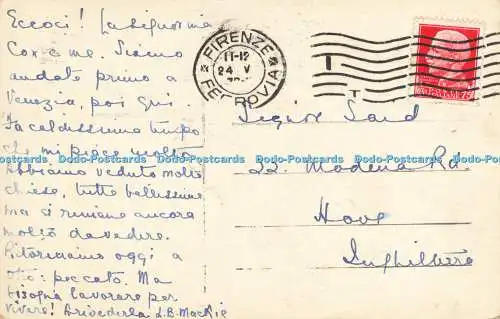 Eccoci! La Signorina
Cox e me. Siamo
andate primo a
Venezia, poi qui.
Fa caldissimo tempo
che mi piace molto
Abbiamo veduto molte
chiese, tutte bellissime
ma ci rimane ancora
molto da vedere.
Ritorniamo oggi a
otto: peccato. Ma
bisogna lavorare per
vivere! Arrivederla L.B. Mackie
FIRENZE
11-12
24 V
FERROVIA
Signore Sand
22. Modena Rd.
Hove
Inghilterra
Dodo-Postcards Dodo-Postcards Dodo-Postcards Dodo-Postcards